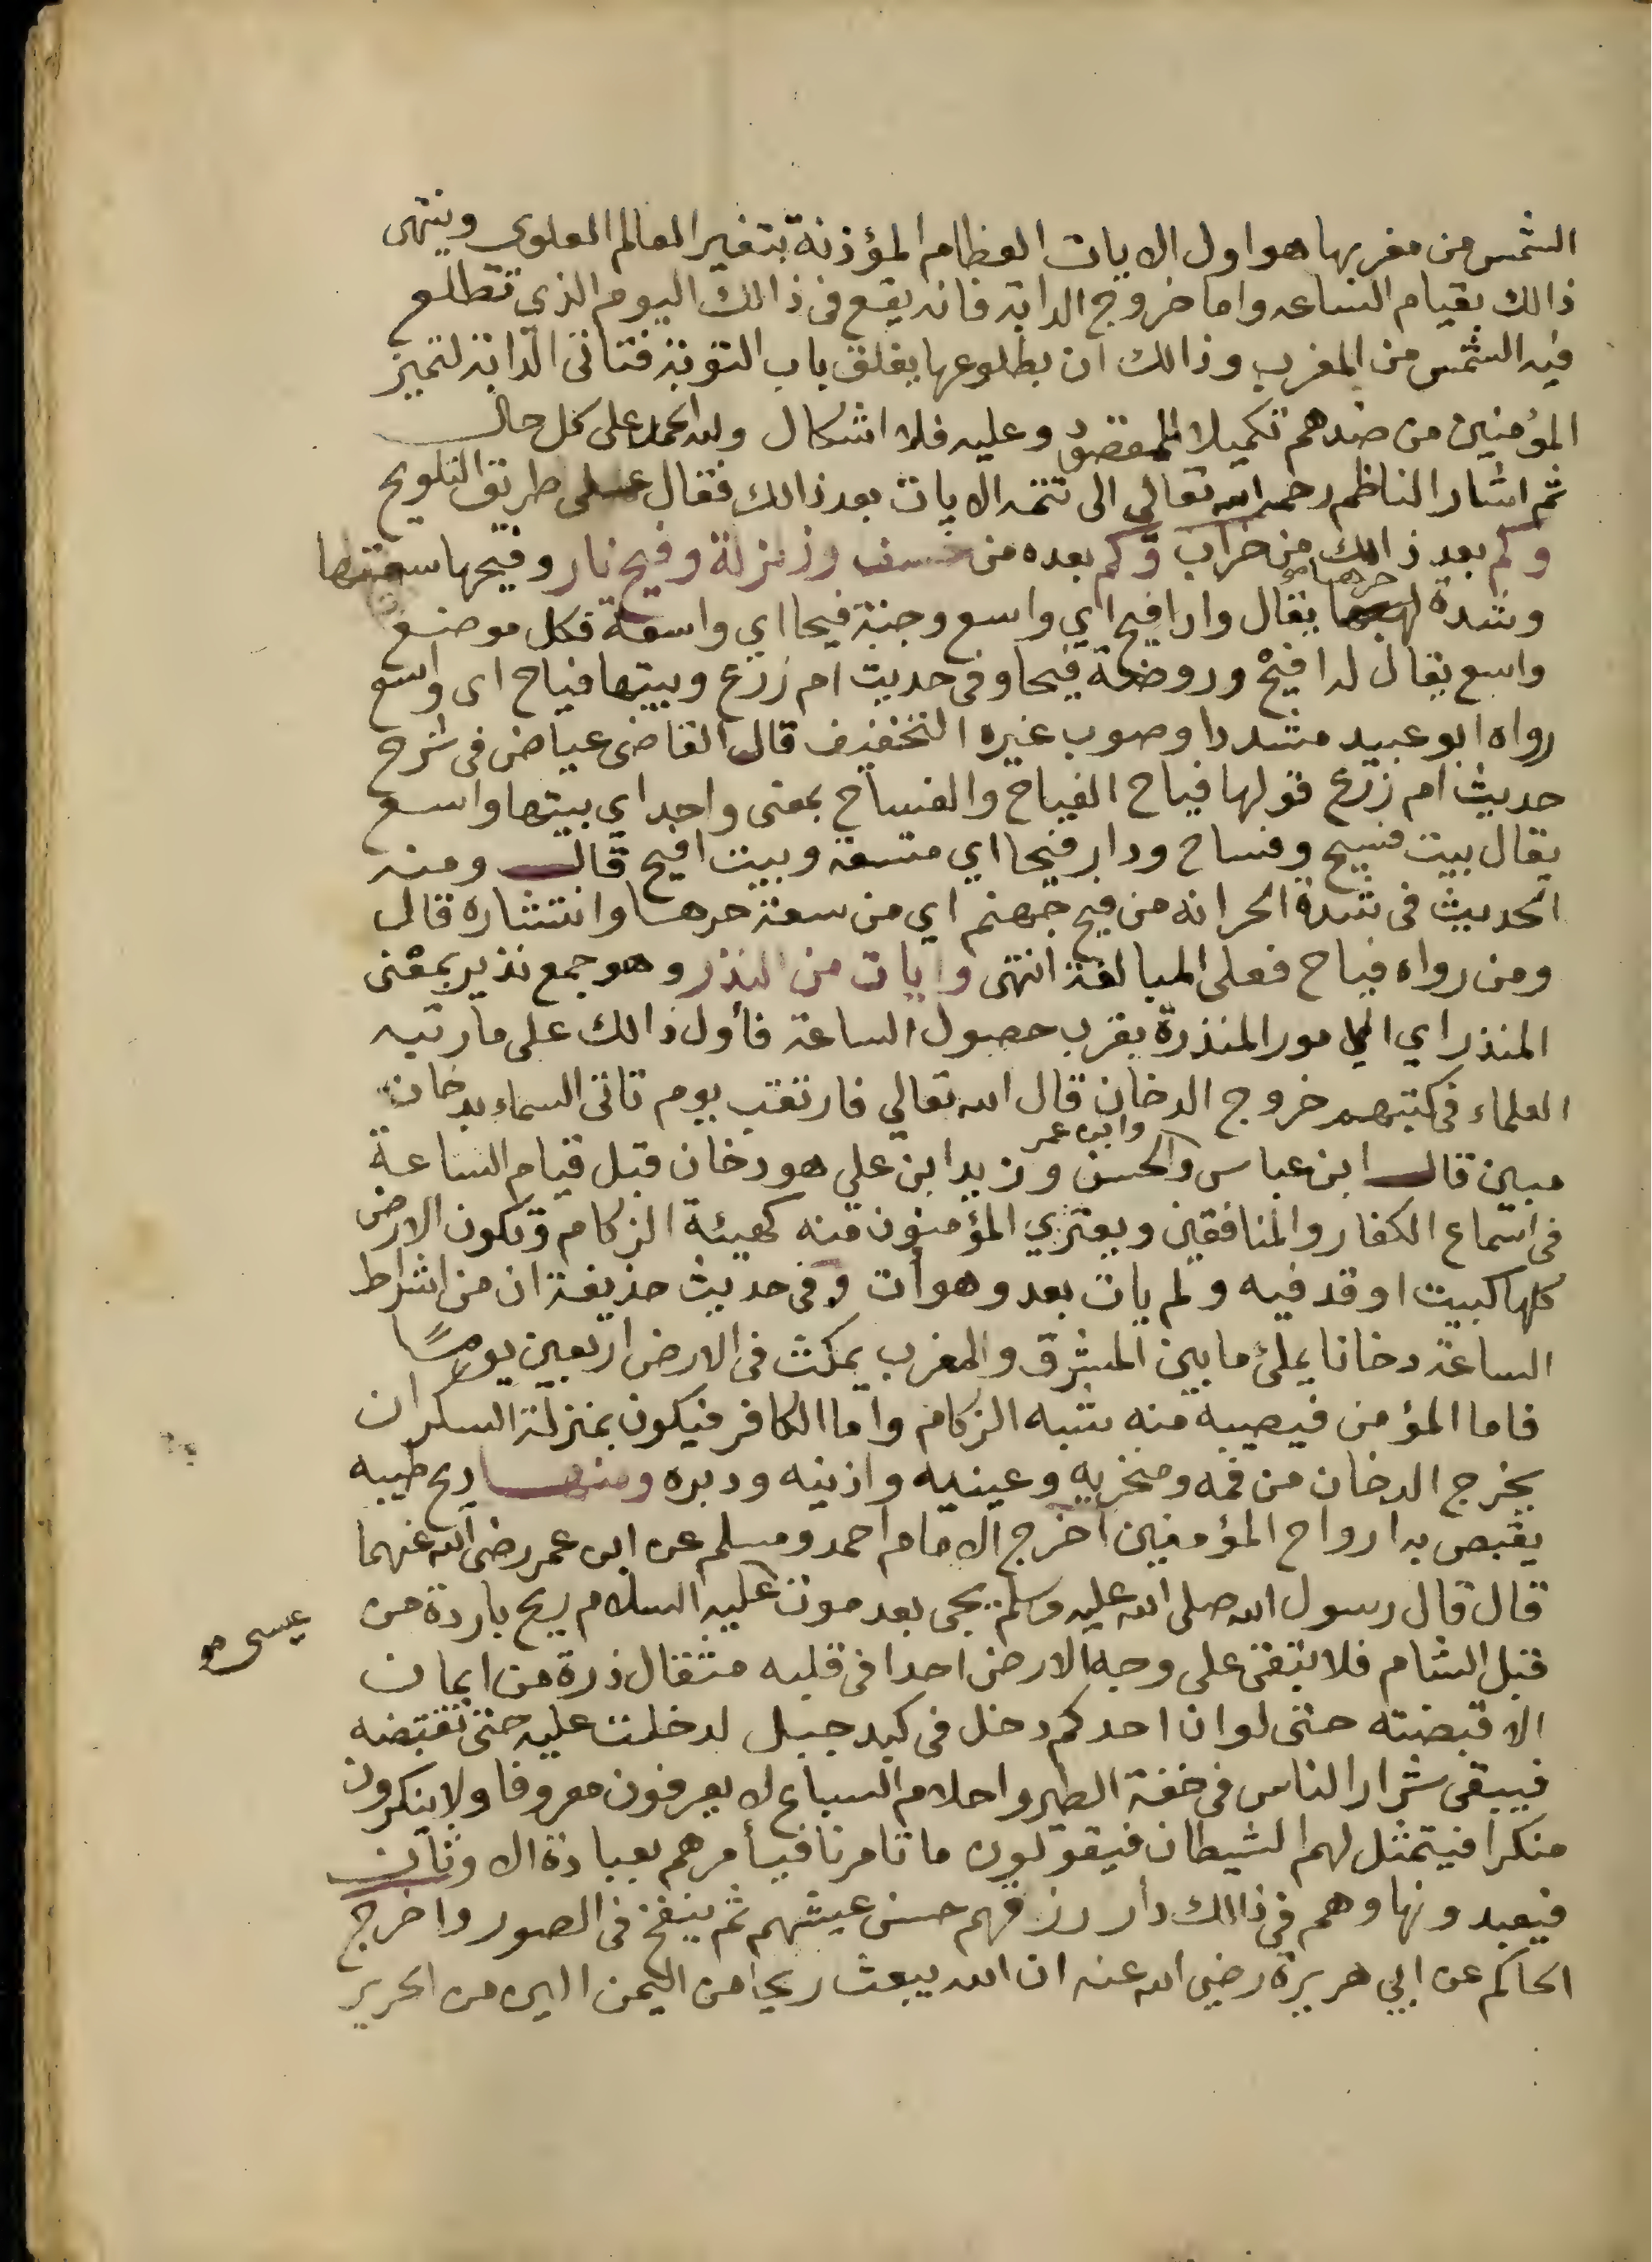 الشمس من مغربها هو اول الايات العظام المؤذنة بتغير العالم العلوي وينتهى
ذالك بقيام الساعه واما خروج الدابة فانه يقع فى ذالك اليوم الذي تطلع
فيه الشمس من المغرب وذالك ان بطلوعها يغلق باب التوبة فتاتى الدابة لتميز
المؤمنين من ضدهم تكميلا للمقصود وعليه فلا اشكال ولله الحمد على كل حال
ثم اشار الناظم رحمه الله تعالى الى تتمه الايات بعد ذالك فقال على طريق التلويح
وكم بعد ذالك من خراب وكم بعده من خسف وزلزلة وفيح نار وفيحها سعتها
وشدة حرها يقال وادا فيح اي واسع وجنة فيحا اي واسعة فكل موضع
واسع يقال له افيح وروضة فيحا وفى حديث ام زرع وبيتها فياح اى واسع
رواه ابو عبيد مشددا وصوب غيره التخفيف قال القاضى عياض فى شرح
حديث ام زرع قولها فياح الفياح والفساح بمعنى واحد اي بيتها واسع
يقال بيت فسيح وفساح ودار فيحا اي متسعة وبيت افيح قال ومنه
الحديث فى شدة الحر انه من فيح جهنم اي من سعة حرها وانتشاره قال
ومن رواه فياح فعلى المبالغة انتهى وايات من النذر وهو جمع نذير بمعنى
المنذر اي الامور المنذرة بقرب حصول الساعة فأول ذالك على ما رتبه
العلماء فى كتبهم خروج الدخان قال الله تعالي فارتقب يوم تاتى السماء بدخان
مبين قال ابن عباس وابن عمر والحسن وزيد ابن علي هو دخان قبل قيام الساعة
فى اسماع الكفار والمنافقين ويعتري المؤمنون منه كهيئة الزكام وتكون الارض
كلها كبيت اوقد فيه ولم يات بعد وهو أت وفى حديث حذيفة ان من اشراط
الساعة دخانا يملئ ما بين المشرق والمغرب يمكث فى الارض اربعين يومًا
فاما المؤمن فيصيبه منه شبه الزكام وامّا الكافر فيكون بمنزلة السكران
يخرج الدخان من فمه ومنخريه وعينيه واذنيه ودبره ومنها ريح طيبه
يقبض به ارواح المؤمنين اخرج الامام احمد ومسلم عن ابن عمر رضى الله عنهما
قال قال رسول الله صلى الله عليه وسلم يجى بعد موت عيسى عليه السلام ريح باردة من
قبل الشام فلا تبقى على وجه الارض احدا فى قلبه مثقال ذرة من ايمان
الا قبضته حتى لو ان احدكم دخل فى كبد جبل لدخلت عليه حتى تقبضه
فيبقى شرار الناس فى خفة الطير واحلام السباع لا يعرفون معروفا ولا ينكرون
منكرا فيتمثل لهم الشيطان فيقولون ما تامرنا فيأمرهم بعبادة الاوثان
فيعبدونها وهم فى ذالك دار رزقهم حسن عيشهم ثم ينفخ فى الصور واخرج
الحاكم عن ابي هريرة رضي الله عنه ان الله يبعث ريحا من اليمن الين من الحرير